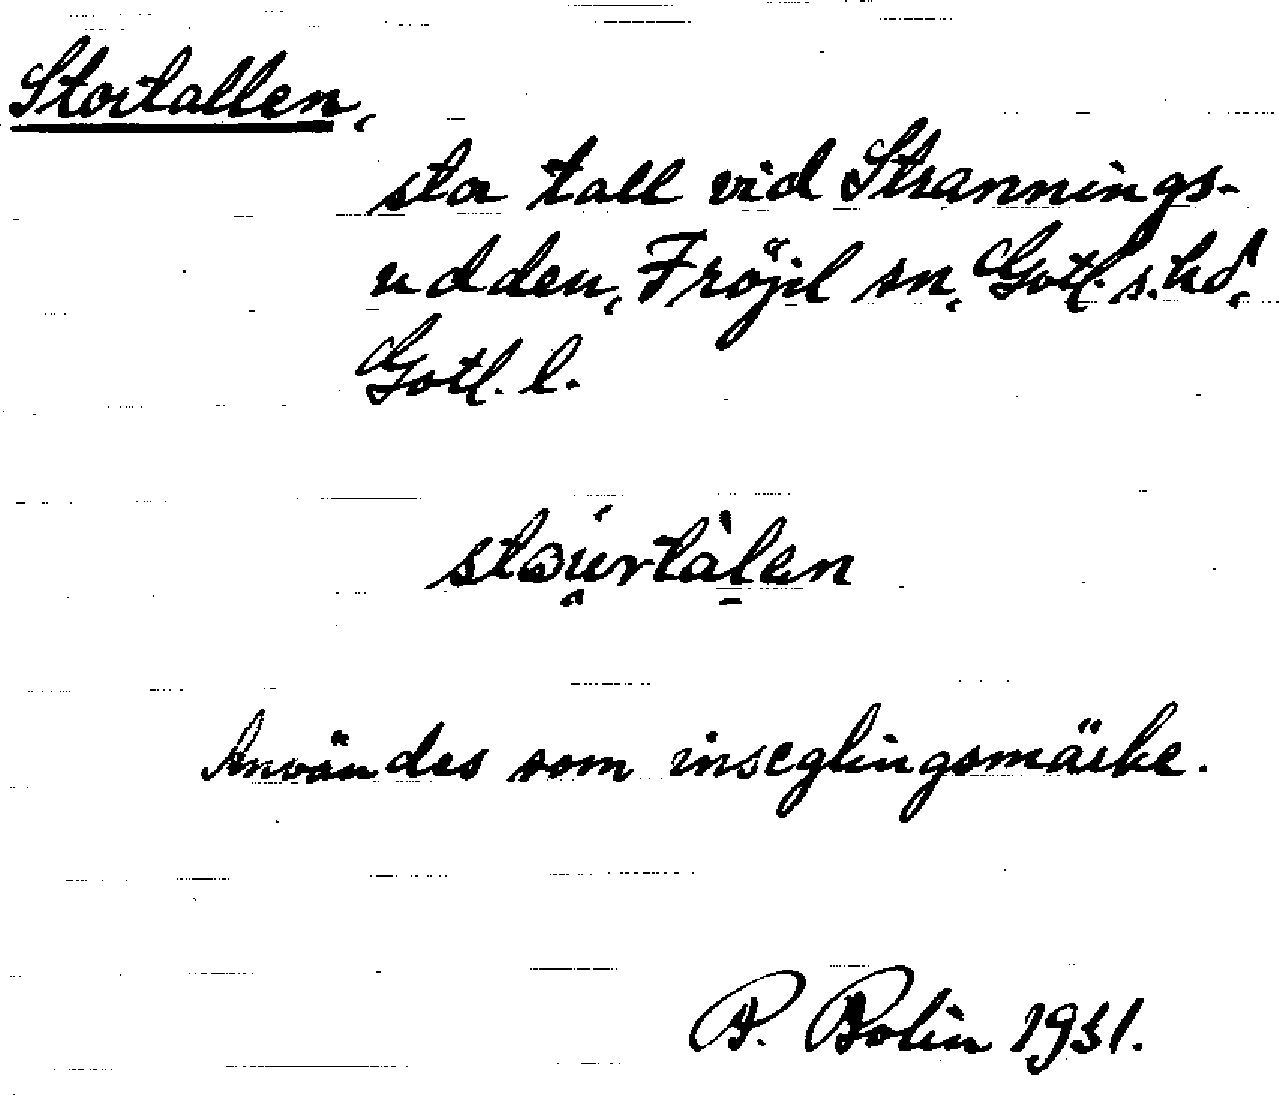 Stortallen,
stor tall vid Strannings-
udden, Fröjel sn, Gotl. s. hd,
Gotl. l.
Användes som inseglingsmärke.
P. Bolin 1931.